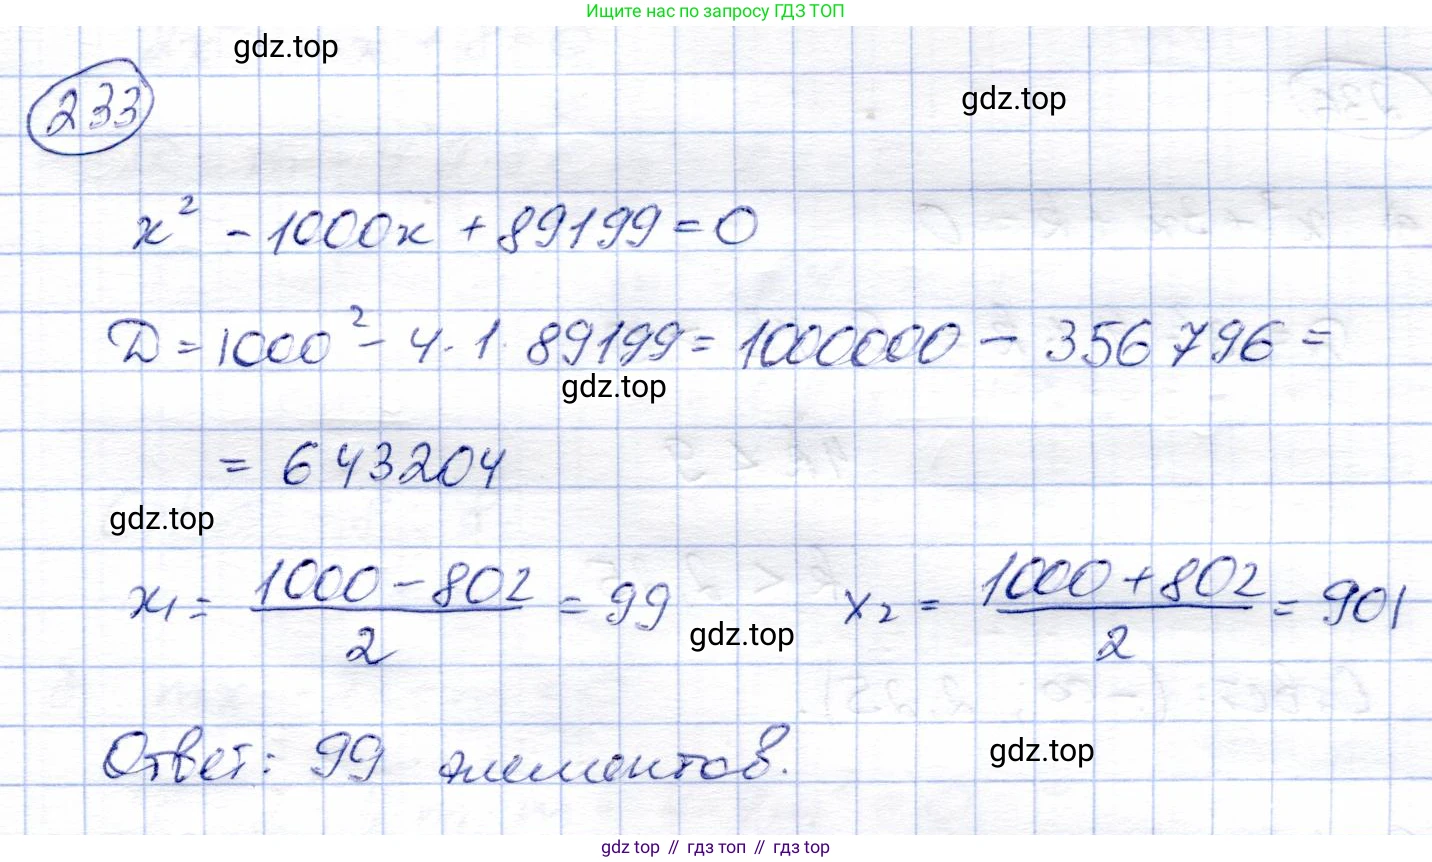 Ищите нас по запросу ГДЗ ТОП
gdz.top
233
gdz.top
x² - 1000x + 89199 = 0
D = 1000² - 4 · 1 · 89199 = 1000000 - 356796 =
gdz.top
= 643204
gdz.top
x₁ = (1000 - 802)/2 = 99 x₂ = (1000 + 802)/2 = 901
gdz.top
Ответ: 99 элементов.
gdz.top
gdz top // гдз топ // гдз top